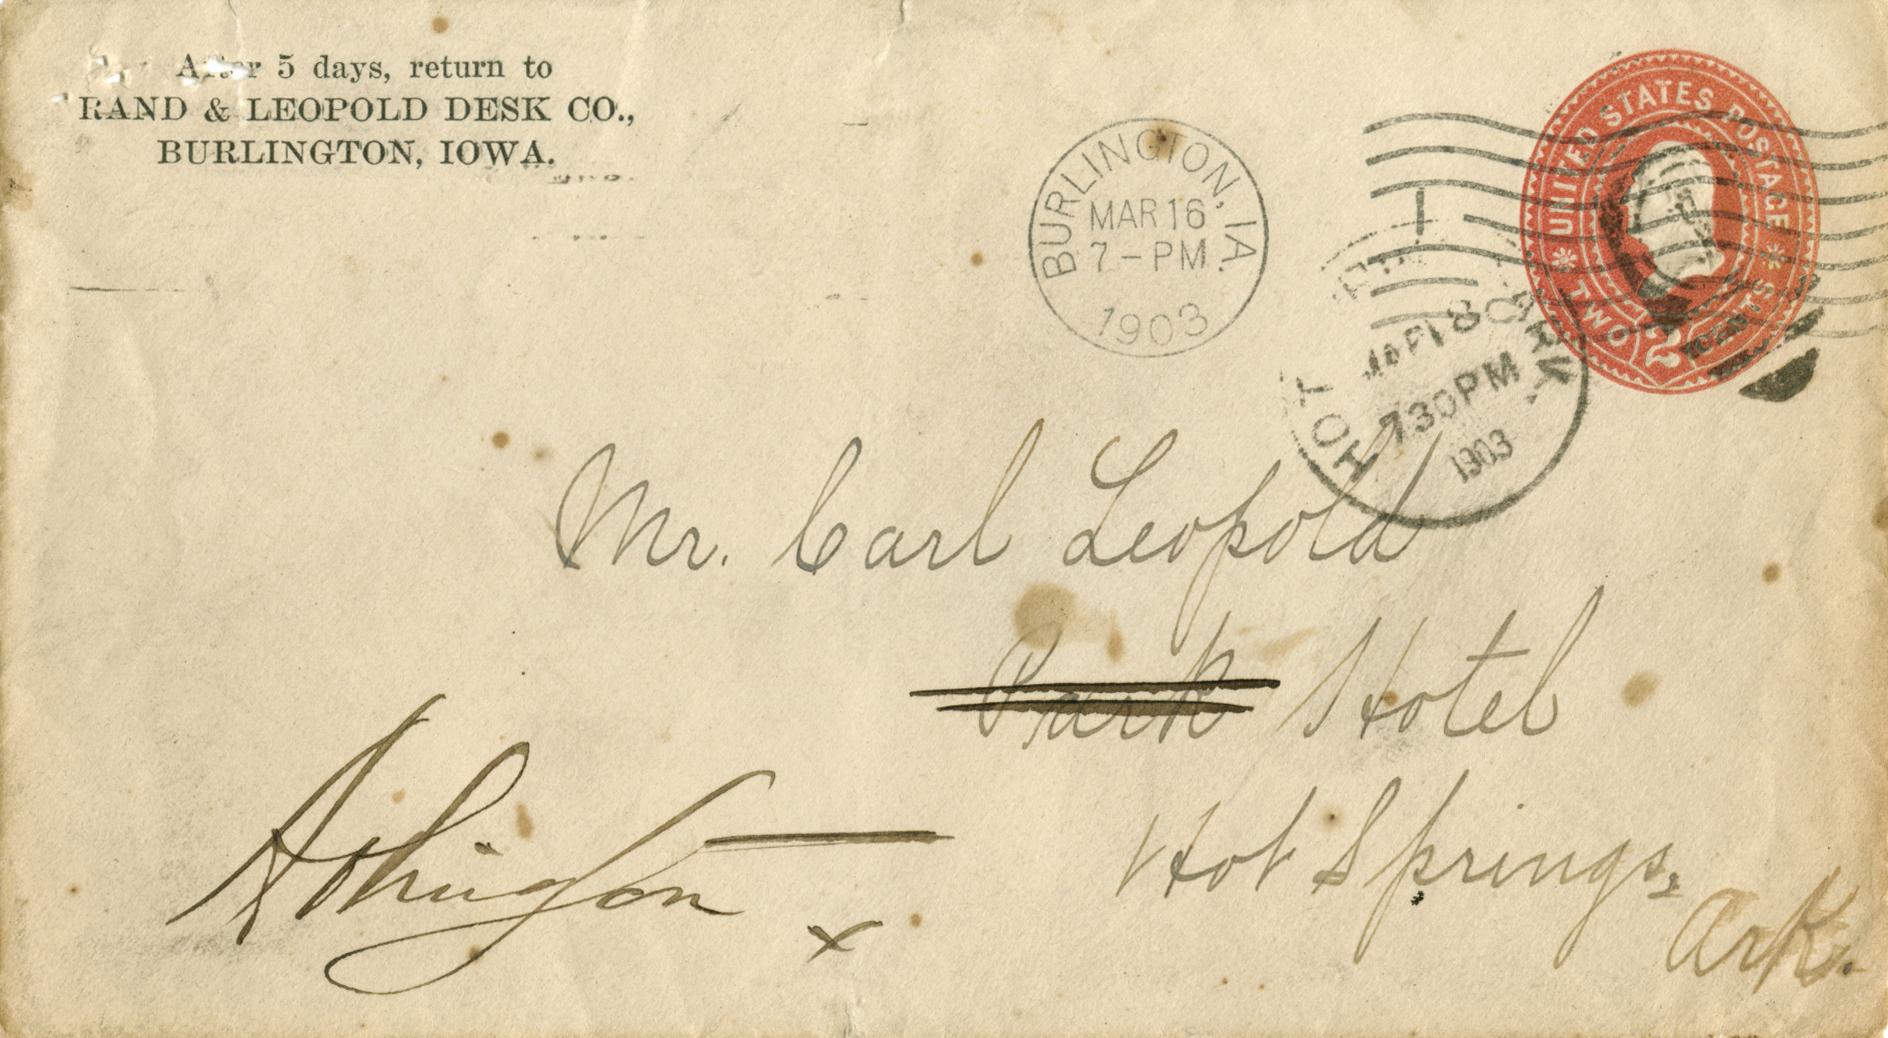 After 5 days, return to
RAND & LEOPOLD DESK CO.,
BURLINGTON, IOWA.
BURLINGTON, IA.
MAR 16
7 - PM
1903
UNITED STATES POSTAGE
TWO 2 CENTS
HOT ARK.
18
730 PM
1903
Mr. Carl Leopold
Park Hotel
Hot Springs,
Ark.
Arlington
x